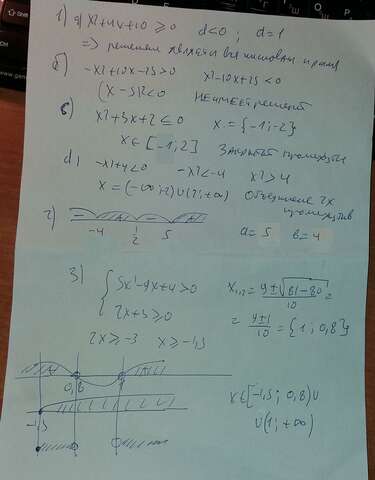 1) a) x²+4x+10 ⩾ 0 d<0 ; d=1
=> решением является вся числовая прямая
б) -x²+10x-25>0 x²-10x+25<0
(x-5)²<0 НЕ ИМЕЕТ РЕШЕНИЙ
в) x²+3x+2 ⩽ 0 x = {-1;-2}
x ∈ [-1;2] Закрытый промежуток
d) -x²+4<0 -x²<-4 x²>4
x = (-∞;-2)∪(2;+∞) Объединение 2х
промежутков
2) -4 1/2 5 a=5 b=4
3) { 5x²-9x+4>0
2x+3⩾0
x₁,₂ = 9±√81-80 / 10 =
= 9±1 / 10 = {1; 0,8}
2x⩾-3 x⩾-1,5
0,8 1
-1,5
x∈[-1,5; 0,8)∪
∪(1;+∞)